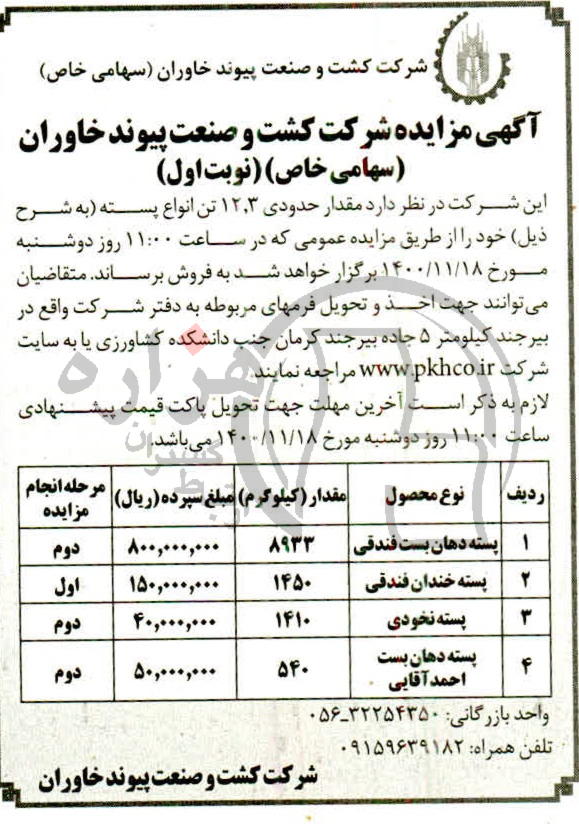 شرکت کشت و صنعت پیوند خاوران (سهامی خاص)
آگهی مزایده شرکت کشت و صنعت پیوند خاوران
(سهامی خاص) (نوبت اول)
این شرکت در نظر دارد مقدار حدودی ۱۲٫۳ تن انواع پسته (به شرح
ذیل) خود را از طریق مزایده عمومی که در ساعت ۱۱:۰۰ روز دوشنبه
مورخ ۱۴۰۰/۱۱/۱۸ برگزار خواهد شد به فروش برساند. متقاضیان
می‌توانند جهت اخذ و تحویل فرمهای مربوطه به دفتر شرکت واقع در
بیرجند کیلومتر ۵ جاده بیرجند کرمان جنب دانشکده کشاورزی یا به سایت
شرکت www.pkhco.ir مراجعه نمایند.
لازم به ذکر است آخرین مهلت جهت تحویل پاکت قیمت پیشنهادی
ساعت ۱۱:۰۰ روز دوشنبه مورخ ۱۴۰۰/۱۱/۱۸ می‌باشد.
ردیف نوع محصول مقدار (کیلوگرم) مبلغ سپرده (ریال) مرحله انجام مزایده
۱ پسته دهان بست فندقی ۸۹۳۳ ۸۰۰,۰۰۰,۰۰۰ دوم
۲ پسته خندان فندقی ۱۴۵۰ ۱۵۰,۰۰۰,۰۰۰ اول
۳ پسته نخودی ۱۴۱۰ ۴۰,۰۰۰,۰۰۰ دوم
۴ پسته دهان بست احمدآقایی ۵۴۰ ۵۰,۰۰۰,۰۰۰ دوم
واحد بازرگانی: ۳۲۲۵۴۳۵۰-۰۵۶
تلفن همراه: ۰۹۱۵۹۶۳۹۱۸۲
شرکت کشت و صنعت پیوند خاوران
هزاره